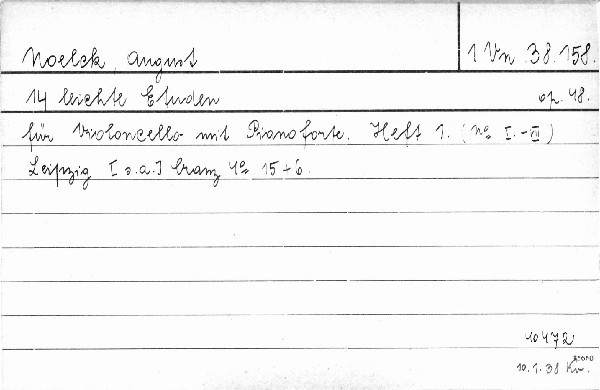 Noelck, August 1 Vn. 38.158.
14 leichte Etuden op. 48.
für Violoncello mit Pianoforte. Heft 1. (No I.-VII)
Leipzig [s.a.] Cranz 4o 15 + 6.
10472
10.1.38 Kv.